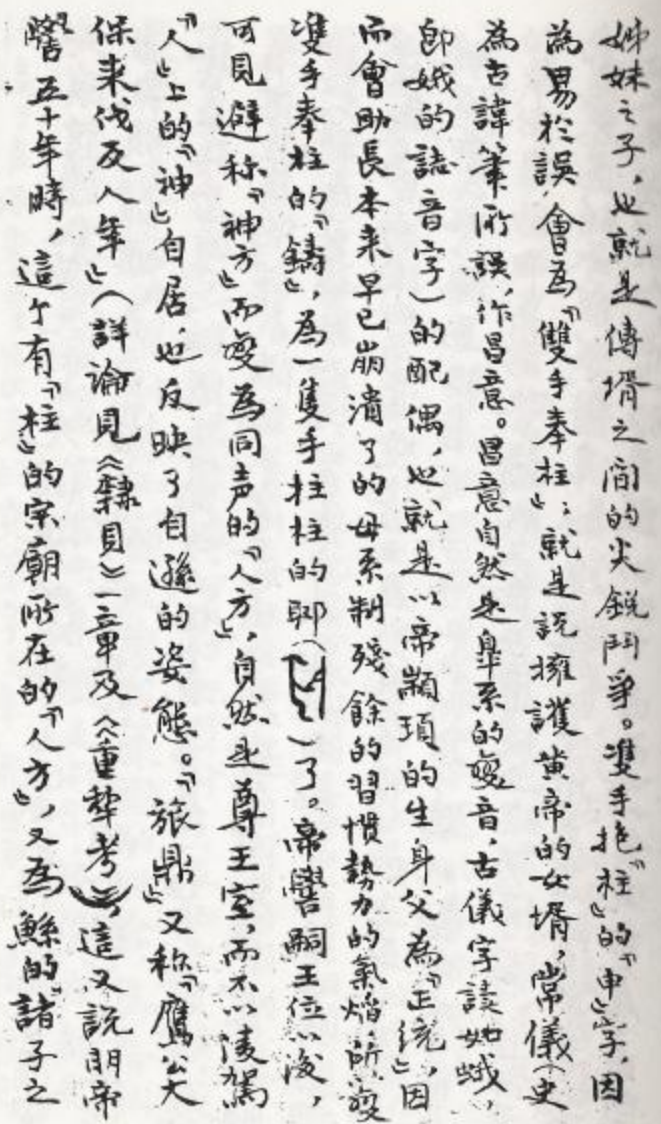 姊妹之子，也就是傳壻之間的尖銳鬥爭。雙手抱“柱”的“申”字，因
為易於誤會為“雙手奉柱”，就是說擁護黃帝的女壻，常儀（史
為古諱筆所誤，作昌意。昌意自然是皐系的變音，古儀字讀如蛾，
即娥的諱音字）的配偶，也就是以帝顓頊的生身父為“正統”，因
而會助長本来早已崩潰了的母系制殘餘的習慣勢力的氣焰，所以變
雙手奉柱的“鑄”，為一隻手拄柱的（）了。帝嚳嗣王位以後，
可見避称“神方”而變為同声的“人方”，自然是尊王室，而不以凌駕
“人”上的“神”自居，也反映了自遜的姿態。“旅鼎”又称“鷹公大
保来伐反人年”（詳論見《隸貝》一章及《重犂考》），這又說明帝
嚳五十年時，這个有“柱”的宗廟所在的“人方”，又為鯀的“諸子之